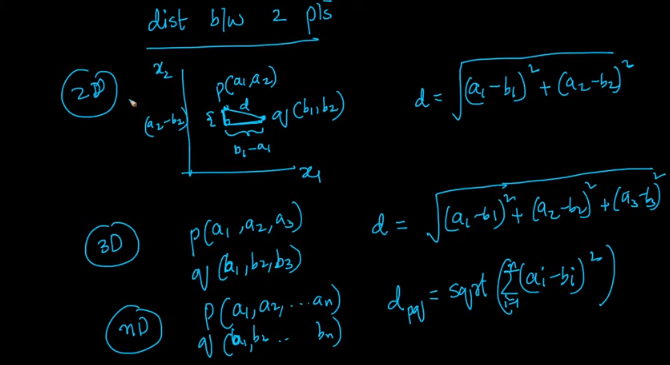 dist b/w 2 pts
2D
x₂
p(a₁,a₂)
d
q(b₁,b₂)
(a₂-b₂)
b₁-a₁
x₁
d = √((a₁-b₁)² + (a₂-b₂)²)
3D
p(a₁, a₂, a₃)
q(b₁, b₂, b₃)
d = √((a₁-b₁)² + (a₂-b₂)² + (a₃-b₃)²)
nD
p(a₁, a₂, ... aₙ)
q(b₁, b₂ ... bₙ)
d_pq = sqrt(∑ⁿᵢ₌₁(aᵢ-bᵢ)²)